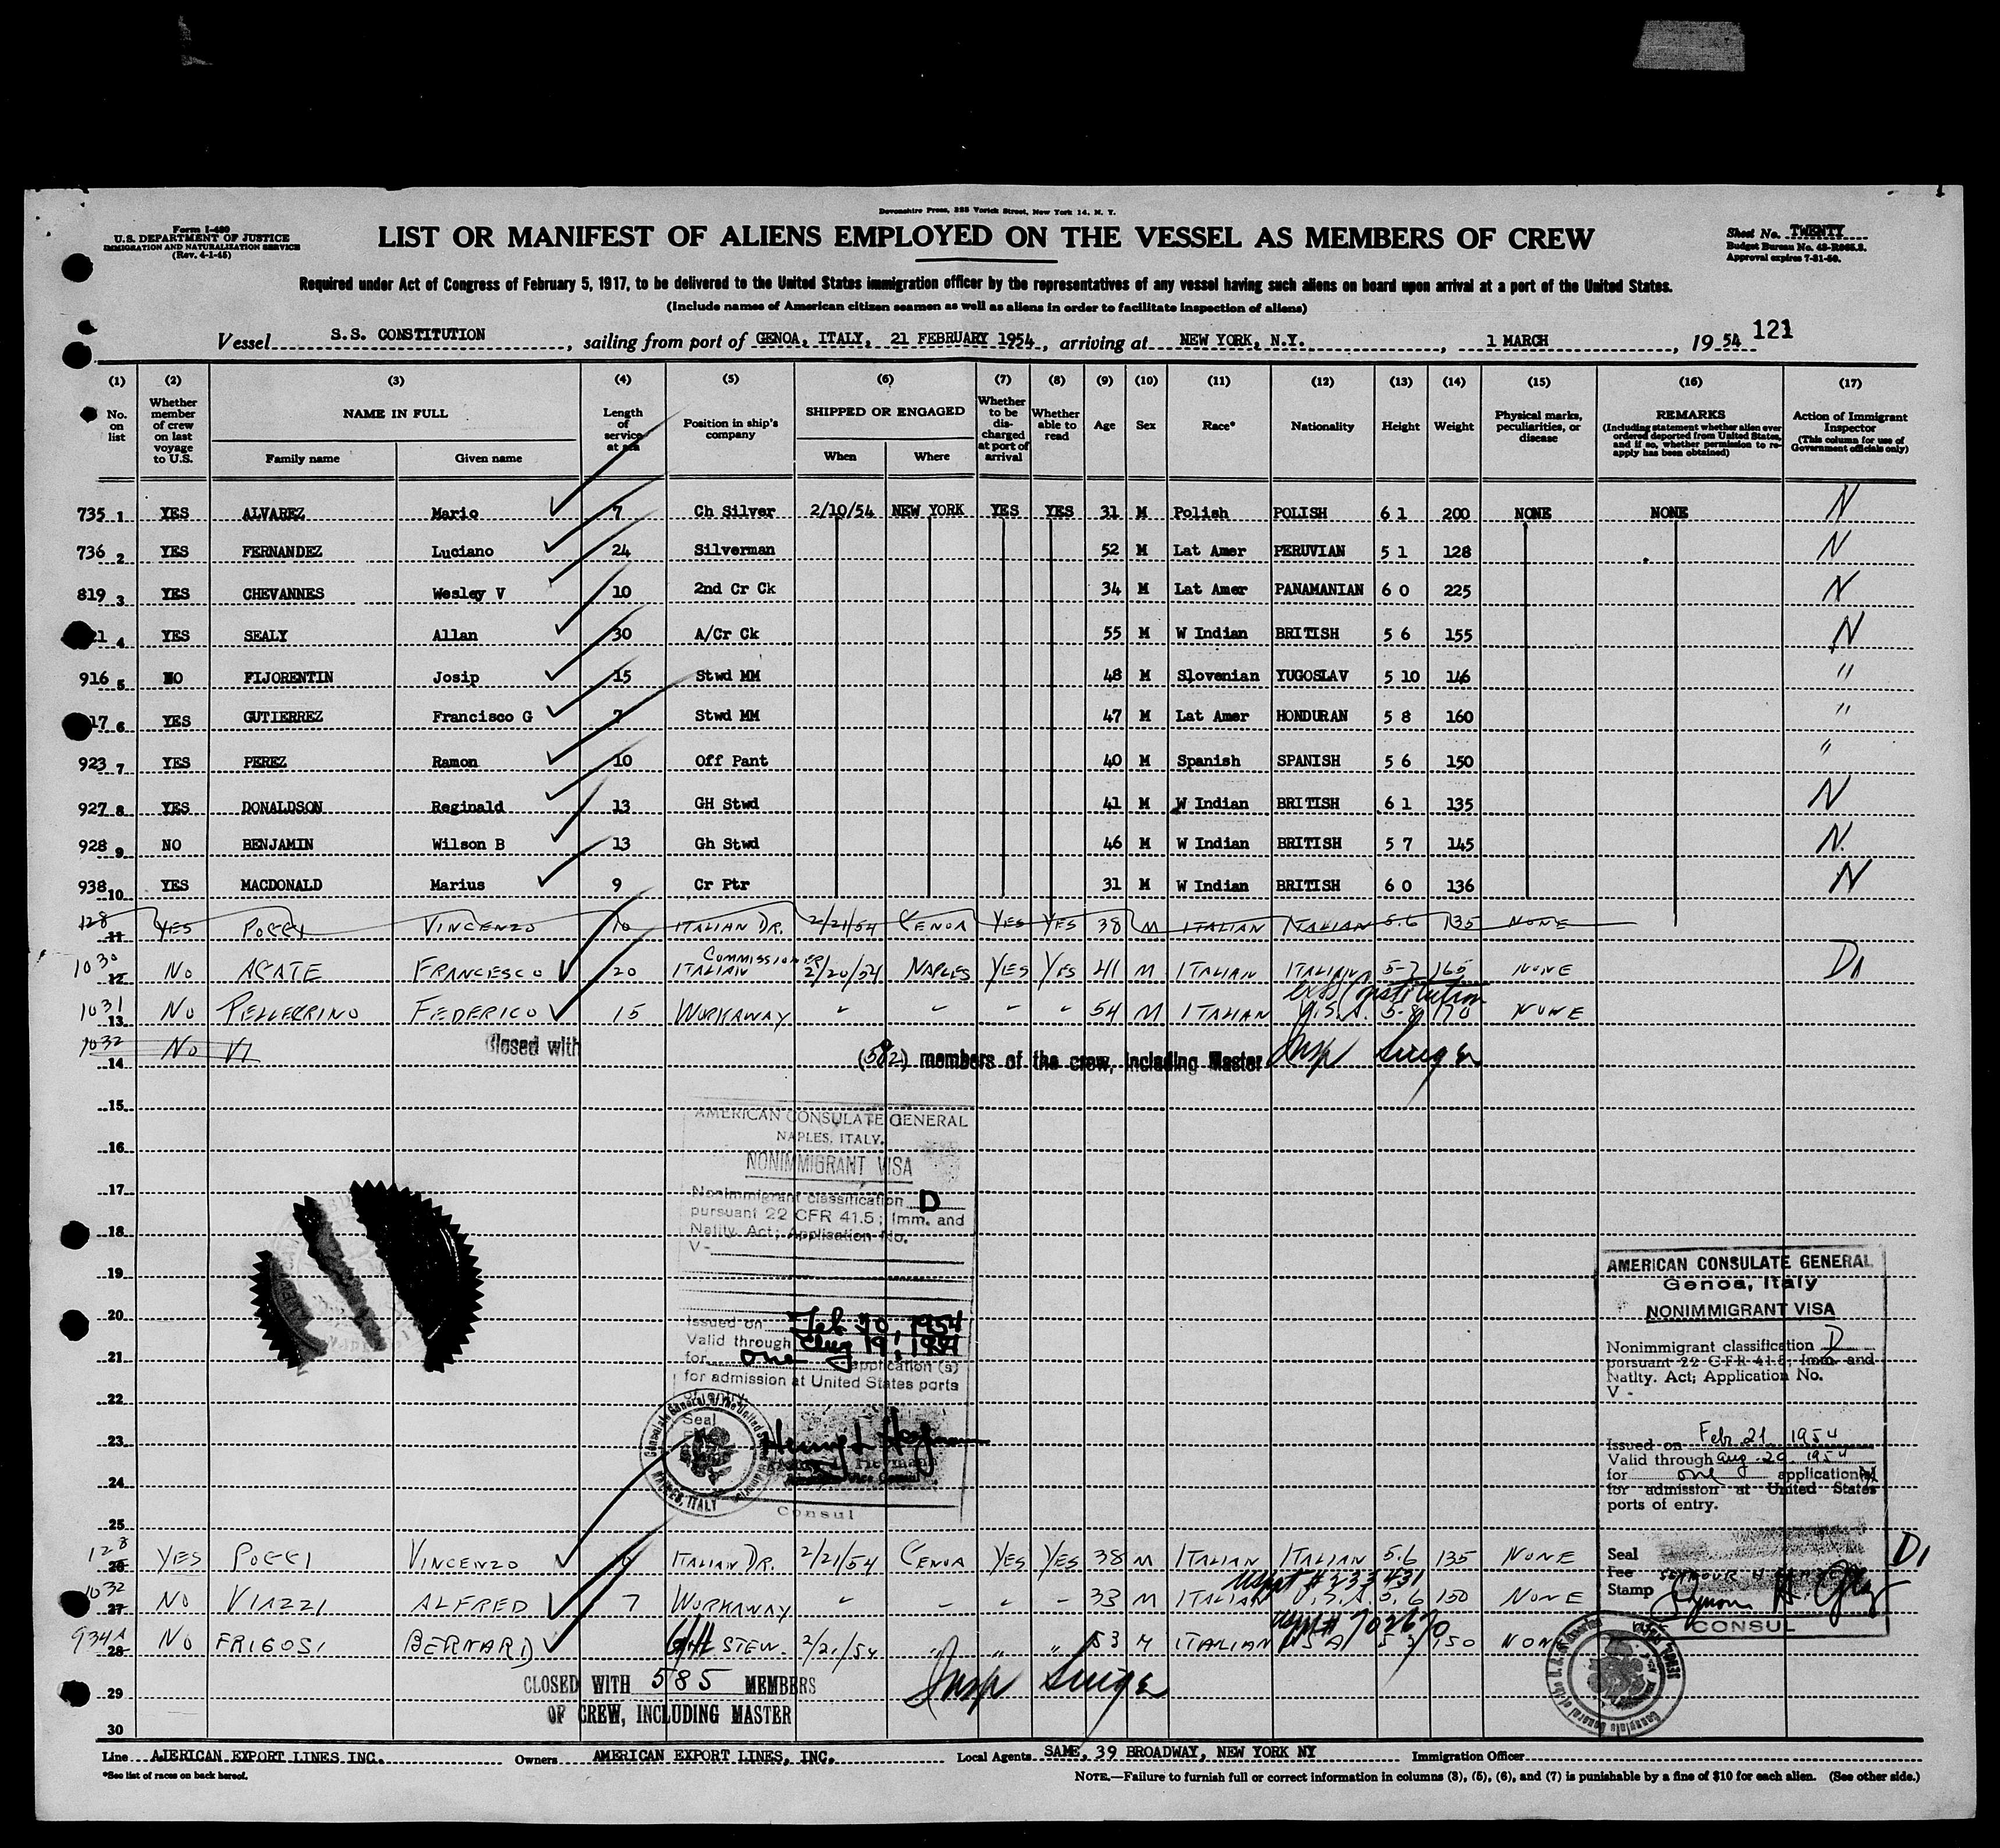 Devonshire Press, 225 Varick Street, New York 14, N. Y.
Form I-480
U.S. DEPARTMENT OF JUSTICE
IMMIGRATION AND NATURALIZATION SERVICE
(Rev. 4-1-45)
LIST OR MANIFEST OF ALIENS EMPLOYED ON THE VESSEL AS MEMBERS OF CREW
Sheet No. TWENTY
Budget Bureau No. 43-R065.2.
Approval expires 7-31-50.
Required under Act of Congress of February 5, 1917, to be delivered to the United States immigration officer by the representatives of any vessel having such aliens on board upon arrival at a port of the United States.
(Include names of American citizen seamen as well as aliens in order to facilitate inspection of aliens)
Vessel S.S. CONSTITUTION, sailing from port of GENOA, ITALY, 21 FEBRUARY 1954, arriving at NEW YORK, N.Y., 1 MARCH, 19 54 121
(1) (2) (3) (4) (5) (6) (7) (8) (9) (10) (11) (12) (13) (14) (15) (16) (17)
No. on list
Whether member of crew on last voyage to U.S.
NAME IN FULL
Family name Given name
Length of service at sea
Position in ship's company
SHIPPED OR ENGAGED
When Where
Whether to be discharged at port of arrival
Whether able to read
Age
Sex
Race*
Nationality
Height
Weight
Physical marks, peculiarities, or disease
REMARKS
(Including statement whether alien ever ordered deported from United States, and if so, whether permission to re-apply has been obtained)
Action of Immigrant Inspector
(This column for use of Government officials only)
735 1 YES ALVAREZ Mario 7 Ch Silver 2/10/54 NEW YORK YES YES 31 M Polish POLISH 6 1 200 NONE NONE N
736 2 YES FERNANDEZ Luciano 24 Silverman 52 M Lat Amer PERUVIAN 5 1 128 N
819 3 YES CHEVANNES Wesley V 10 2nd Cr Ck 34 M Lat Amer PANAMANIAN 6 0 225 N
21 4 YES SEALY Allan 30 A/Cr Ck 55 M W Indian BRITISH 5 6 155 N
916 5 NO FIJORENTIN Josip 15 Stwd MM 48 M Slovenian YUGOSLAV 5 10 146 "
17 6 YES GUTIERREZ Francisco G 7 Stwd MM 47 M Lat Amer HONDURAN 5 8 160 "
923 7 YES PEREZ Ramon 10 Off Pant 40 M Spanish SPANISH 5 6 150 "
927 8 YES DONALDSON Reginald 13 GH Stwd 41 M W Indian BRITISH 6 1 135 N
928 9 NO BENJAMIN Wilson B 13 Gh Stwd 46 M W Indian BRITISH 5 7 145 N.
938 10 YES MACDONALD Marius 9 Cr Ptr 31 M W Indian BRITISH 6 0 136 N
128 11 YES POGGI VINCENZO 10 ITALIAN DR. 2/21/54 GENOA YES YES 38 M ITALIAN ITALIAN 5.6 135 NONE
1030 12 NO AGATE FRANCESCO 20 ITALIAN COMMISSIONER 2/20/54 NAPLES YES YES 41 M ITALIAN ITALIAN 5-7 165 NONE D1
exss Constitution
1031 13 NO PELLEGRINO FEDERICO 15 WORKAWAY " " " " 54 M ITALIAN U.S.A. 5-8 170 NONE
1032 14 NO VI
Closed with (582) members of the crew, including Master Insp Singer
15
16
17
18
19
20
21
22
23
24
25
AMERICAN CONSULATE GENERAL
NAPLES, ITALY.
NONIMMIGRANT VISA
Nonimmigrant classification D
pursuant 22 CFR 41.5; Imm. and
Natlty. Act; Application No.
V -
Issued on Feb 20, 1954
Valid through Aug 19, 1954
for one application (s)
for admission at United States ports
of entry.
Seal
Consul
AMERICAN CONSULATE GENERAL
Genoa, Italy
NONIMMIGRANT VISA
Nonimmigrant classification D
pursuant 22 CFR 41.5; Imm. and
Natlty. Act; Application No.
V -
Issued on Feb 21 1954
Valid through Aug. 20. 1954
for one application
for admission at United States
ports of entry.
Seal
Fee
Stamp
CONSUL
128 26 YES POGGI VINCENZO 10 ITALIAN DR. 2/21/54 GENOA YES YES 38 M ITALIAN ITALIAN 5.6 135 NONE D1
uspt # 233431
1032 27 NO VIAZZI ALFRED 7 WORKAWAY " " " " 33 M ITALIAN U.S.A. 5.6 150 NONE
uspt # 702670
934A 28 NO FRIGOSI BERNARD GH STEW. 2/21/54 " " 53 M ITALIAN USA 5 150 NONE
29
CLOSED WITH 585 MEMBERS
OF CREW, INCLUDING MASTER
Insp Singer
30
Line AJERICAN EXPORT LINES INC. Owners AMERICAN EXPORT LINES, INC. Local Agents SAME, 39 BROADWAY, NEW YORK NY Immigration Officer
*See list of races on back hereof.
NOTE.—Failure to furnish full or correct information in columns (3), (5), (6), and (7) is punishable by a fine of $10 for each alien. (See other side.)